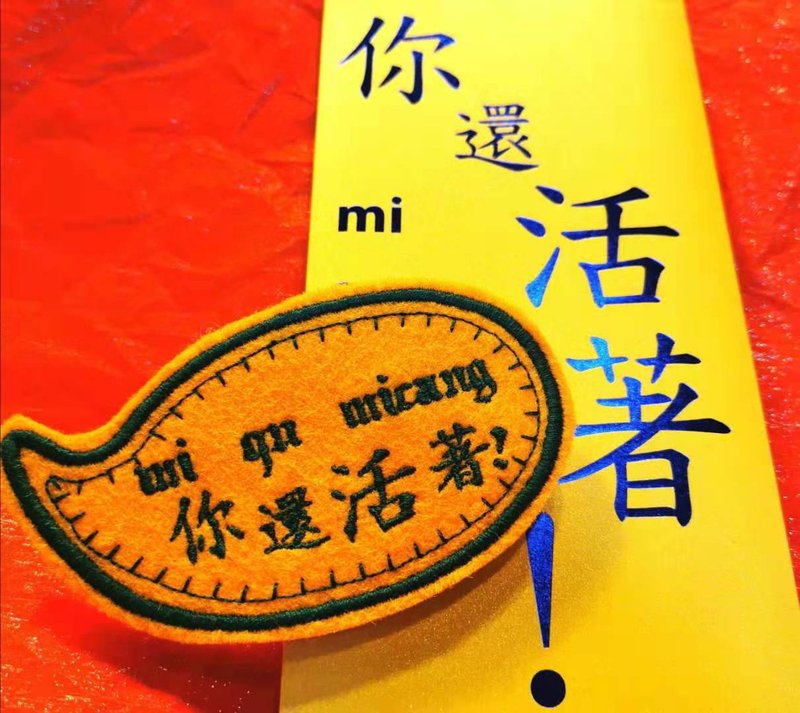 你還活著!
mi
mi qu micang
你還活著!